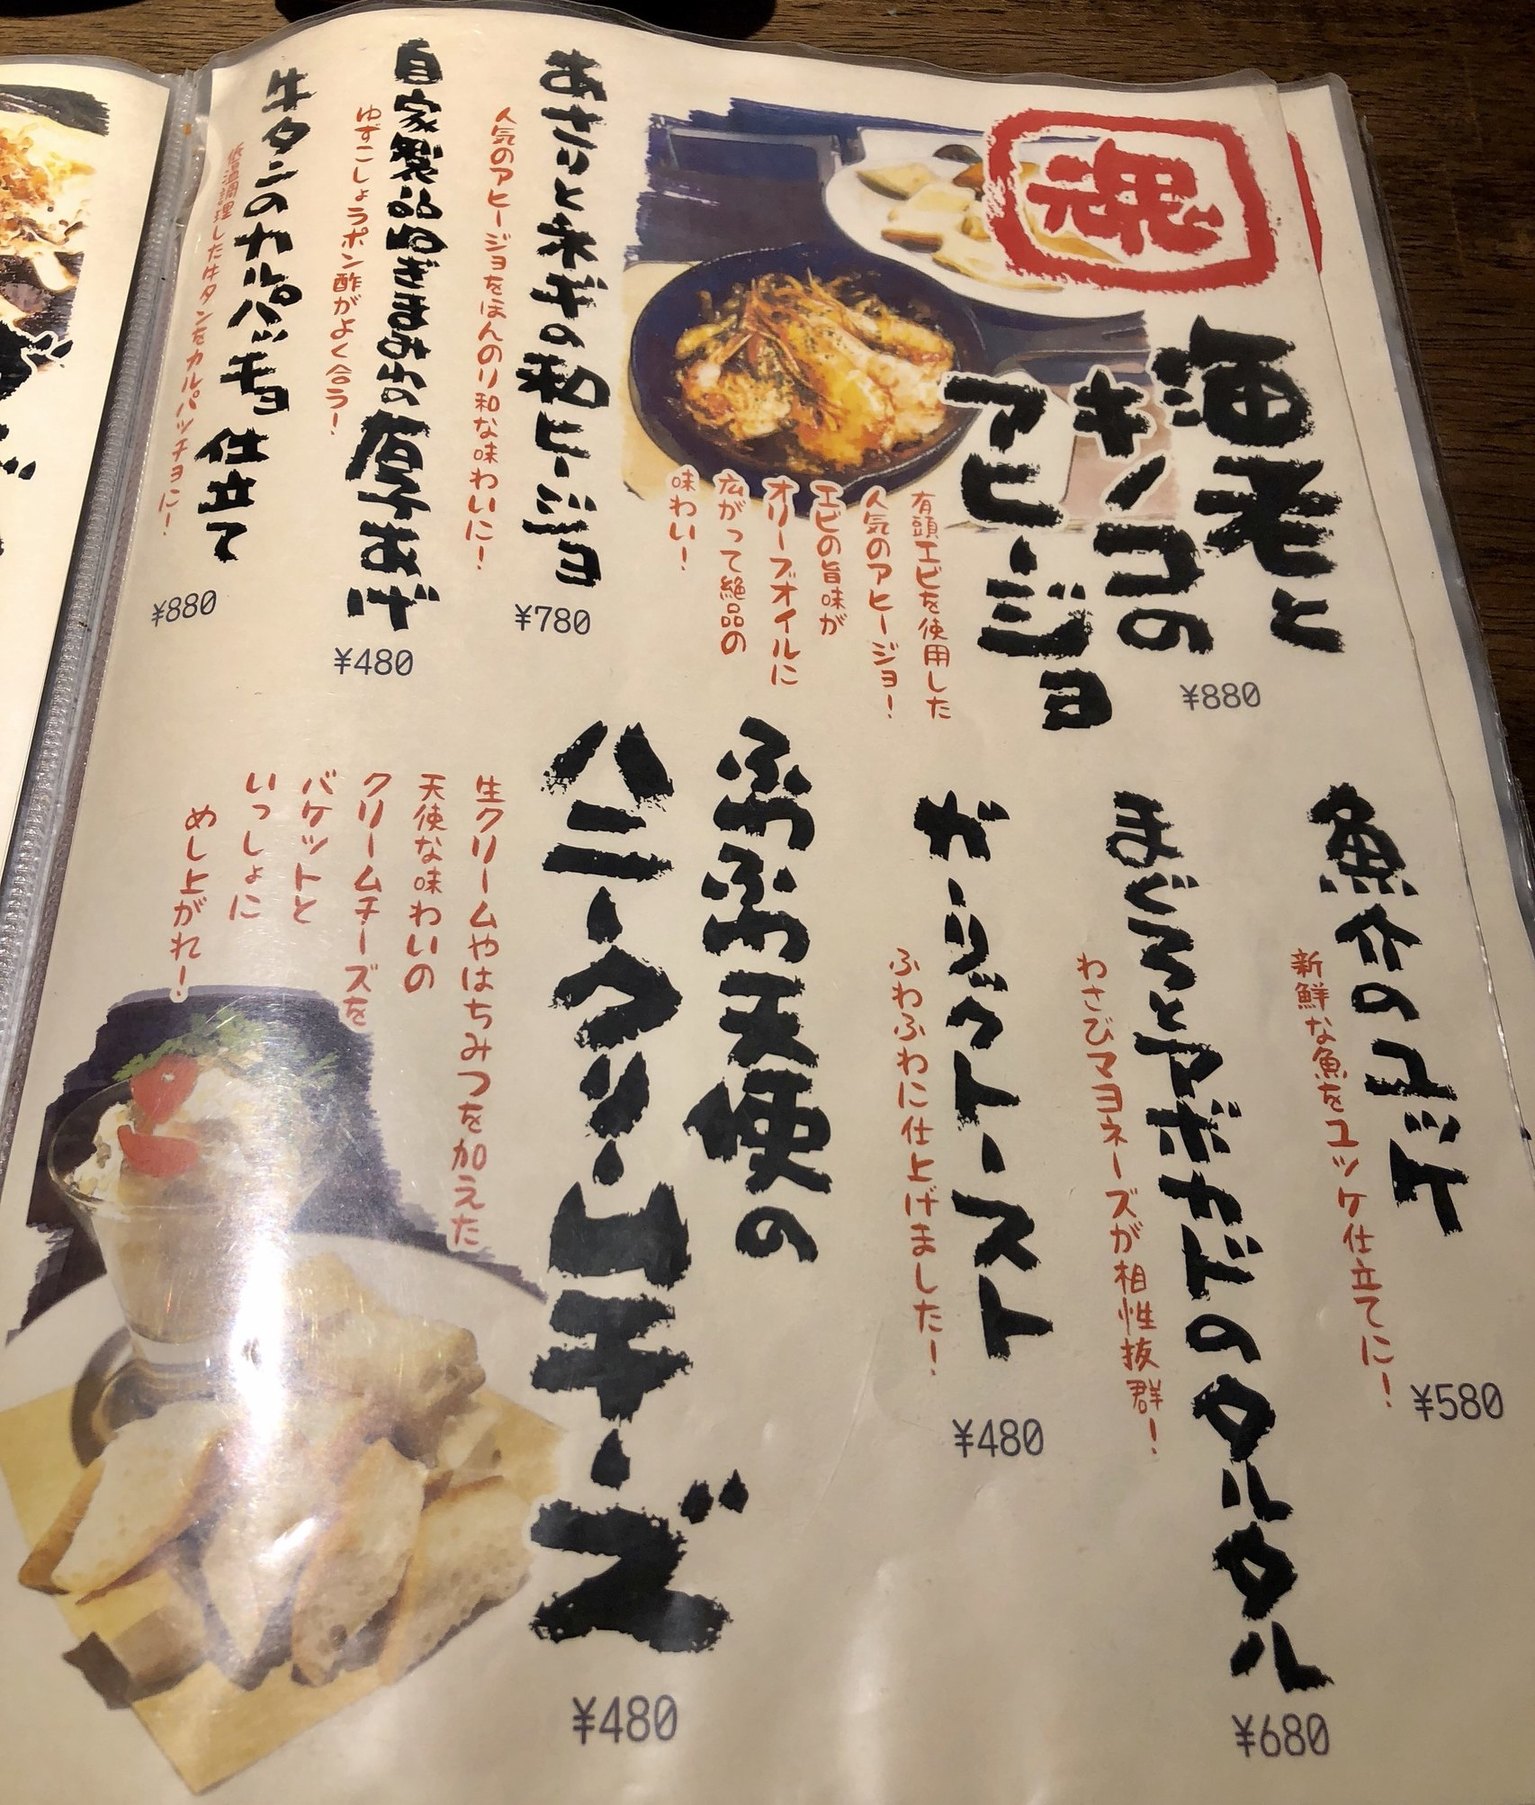 魂
海老と
キノコの
アヒージョ
¥880
有頭エビを使用した
人気のアヒージョ!
エビの旨味が
オリーブオイルに
広がって絶品の
味わい!
あさりと水菜の和ヒージョ
人気のアヒージョをほんのり和な味わいに!
¥780
自家製品ねぎまみれの厚あげ
ゆずこしょうポン酢がよく合う!
¥480
牛タンのカルパッチョ仕立て
低温調理した牛タンをカルパッチョに!
¥880
魚介のユッケ
新鮮な魚をユッケ仕立てに!
¥580
まぐろとアボカドのタルタル
わさびマヨネーズが相性抜群!
¥680
ガーリックトースト
ふわふわに仕上げました!
¥480
ぷぷ天使の
ハニークリームチーズ
¥480
生クリームやはちみつを加えた
天使な味わいの
クリームチーズを
バケットと
いっしょに
めし上がれ!